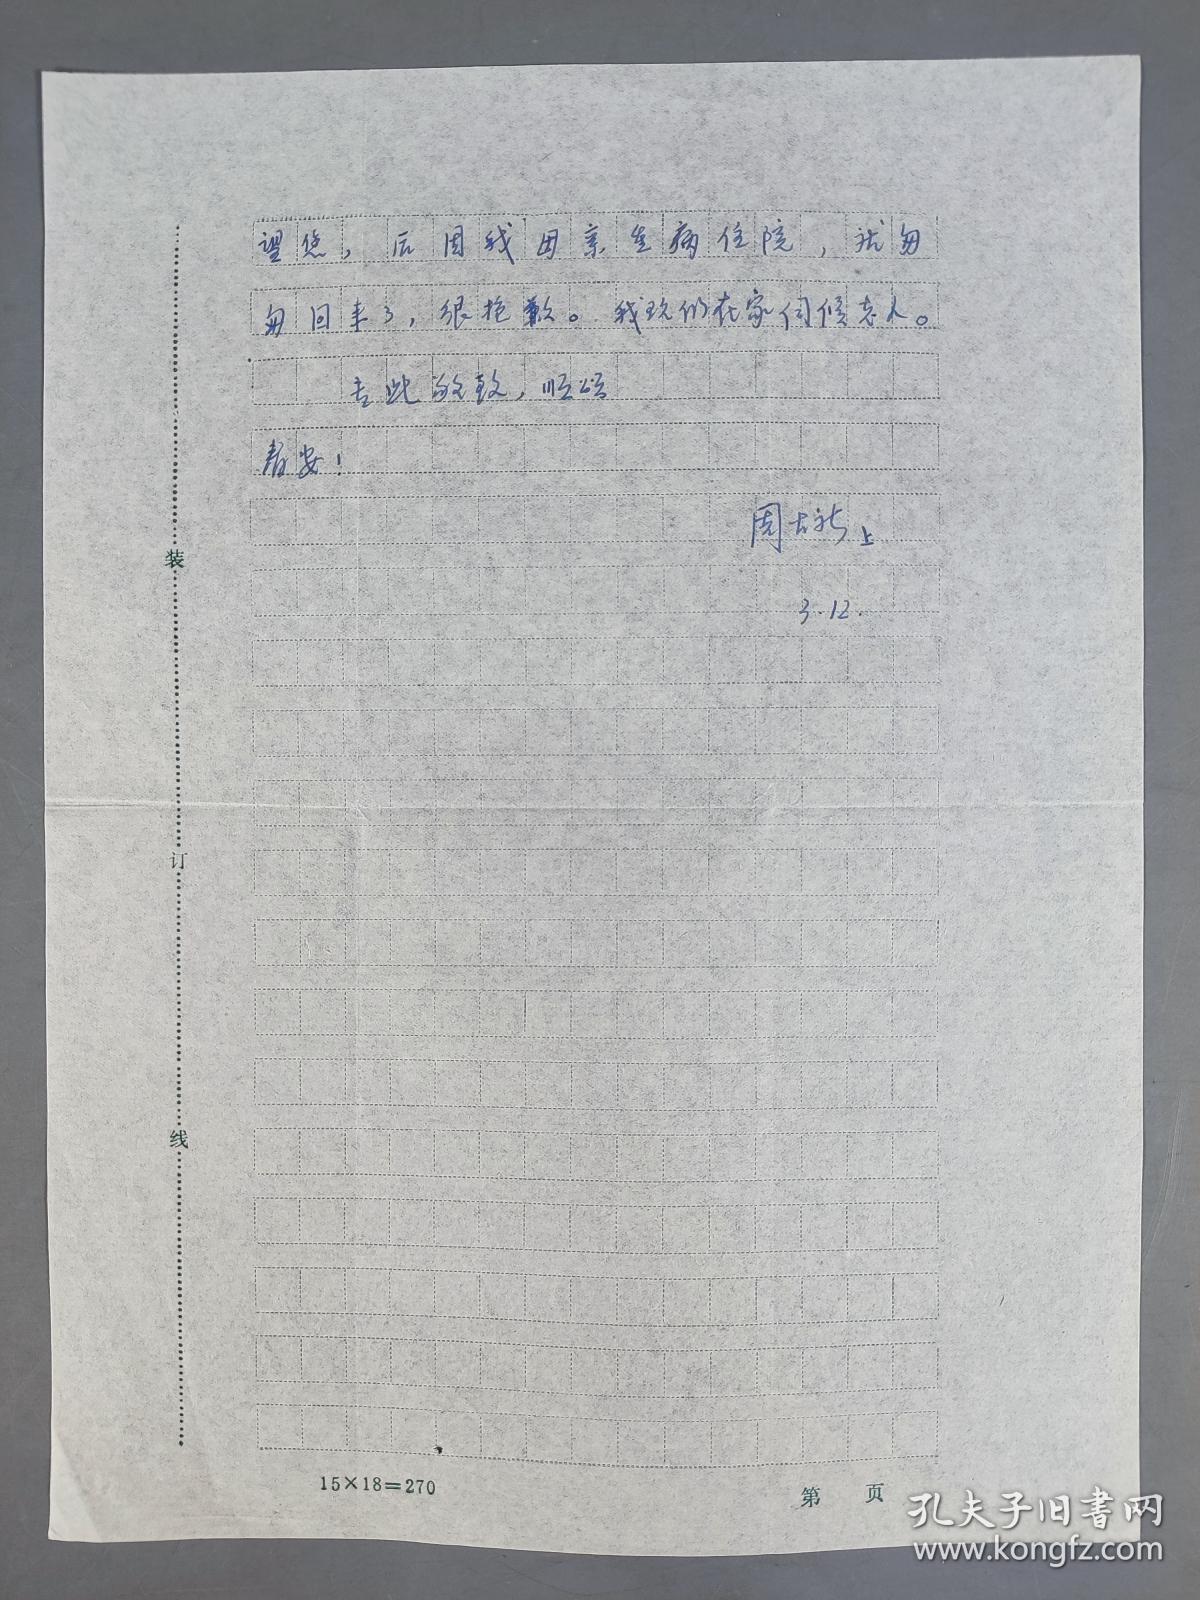 望您，后因我母亲生病住院，就匆
匆回来了，很抱歉。我现仍在家伺候老人。
专此敬致，顺颂
春安！
周古新上
3.12.
装
订
线
15×18=270
第 页
孔夫子旧书网
www.kongfz.com